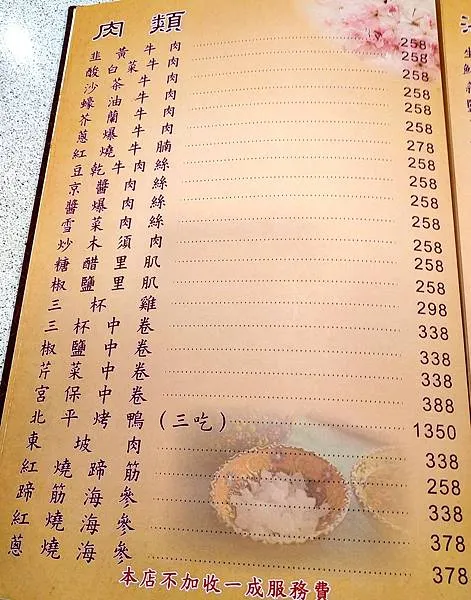 肉類
韭黃牛肉 258
酸白菜牛肉 258
沙茶牛肉 258
蠔油牛肉 258
芥蘭牛肉 258
蔥爆牛肉 258
紅燒牛腩 278
豆乾牛肉絲 258
京醬肉絲 258
醬爆肉絲 258
雪菜肉絲 258
炒木須肉 258
糖醋里肌 258
椒鹽里肌 258
三杯雞 298
三杯中卷 338
椒鹽中卷 338
芹菜中卷 338
宮保中卷 388
北平烤鴨(三吃) 1350
東坡肉 338
紅燒蹄筋 258
蹄筋海參 338
紅燒海參 378
蔥燒海參 378
本店不加收一成服務費